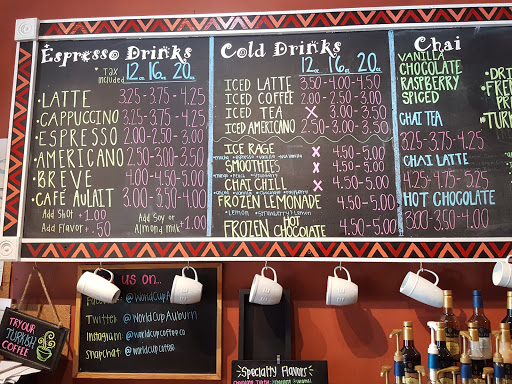 Espresso Drinks
* Tax included 12oz 16oz 20oz
• LATTE 3.25 - 3.75 - 4.25
• CAPPUCCINO 3.25 - 3.75 - 4.25
• ESPRESSO 2.00 - 2.50 - 3.00
• AMERICANO 2.50 - 3.00 - 3.50
• BREVE 4.00 - 4.50 - 5.00
• CAFÉ AULAIT 3.00 - 3.50 - 4.00
Add Shot +1.00
Add Flavor + .50
Add Soy or Almond milk +1.00
Cold Drinks
12oz 16oz 20oz
ICED LATTE 3.50 - 4.00 - 4.50
ICED COFFEE 2.00 - 2.50 - 3.00
ICED TEA X 3.00 - 3.50
ICED AMERICANO 2.50 - 3.00 - 3.50
ICE RAGE X 4.50 - 5.00
SMOOTHIES X 4.50 - 5.00
CHAI CHILL X 4.50 - 5.00
FROZEN LEMONADE 4.50 - 5.00
• Lemon • Strawberry Lemon
FROZEN HOT CHOCOLATE 4.50 - 5.00
Chai
VANILLA
CHOCOLATE
RASPBERRY
SPICED
CHAI TEA
3.25 - 3.75 - 4.25
CHAI LATTE
4.25 - 4.75 - 5.25
HOT CHOCOLATE
3.00 - 3.50 - 4.00
TRY OUR
TURKISH
COFFEE
us on...
Facebook:
Twitter: @WorldCupAuburn
Instagram: @worldcupcoffee.co
Snapchat: @worldcupcoffee
Specialty Flavors